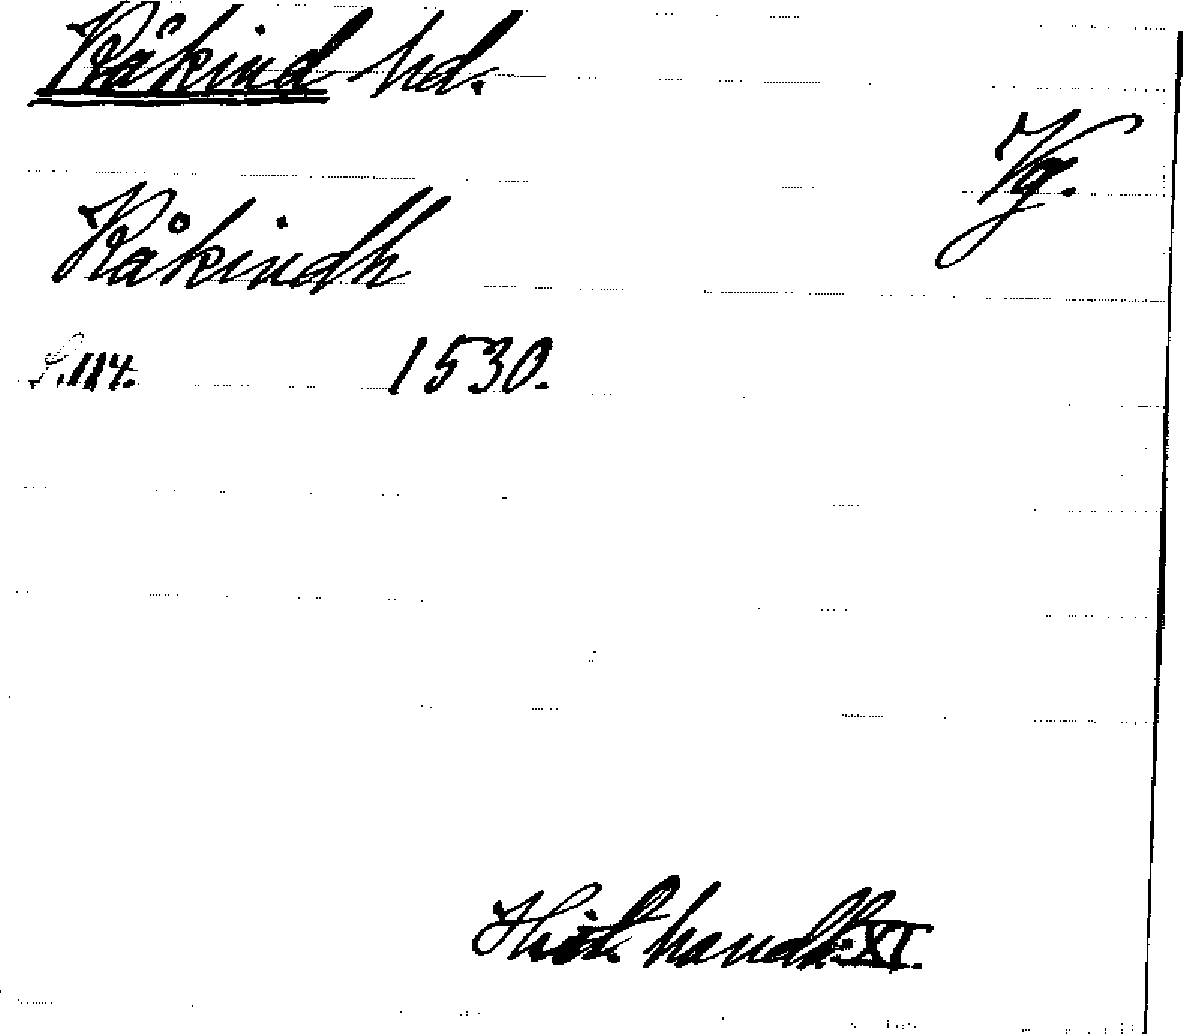 Kåkind hd.
Vg.
Kåkindh
S. 114. 1530.
Hist. handl. XI.